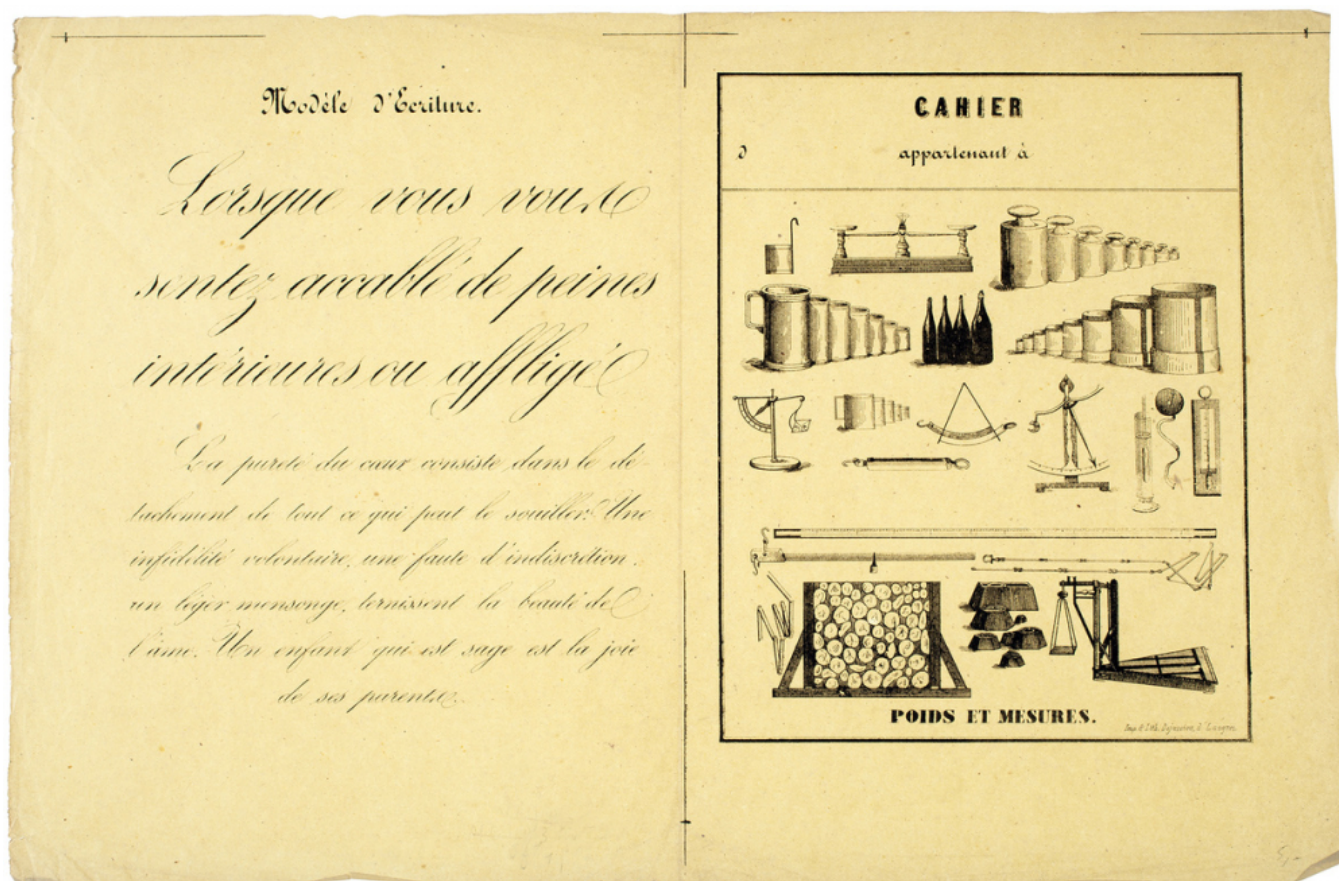 Modèle d'Ecriture.
Lorsque vous vous
sentez accablé de peines
intérieures ou affligé
La pureté du cœur consiste dans le dé-
tachement de tout ce qui peut le souiller. Une
infidélité volontaire, une faute d'indiscrétion,
un léger mensonge, ternissent la beauté de
l'âme. Un enfant qui est sage est la joie
de ses parents.
CAHIER
d appartenant à
POIDS ET MESURES.
Imp. & Lith. d'